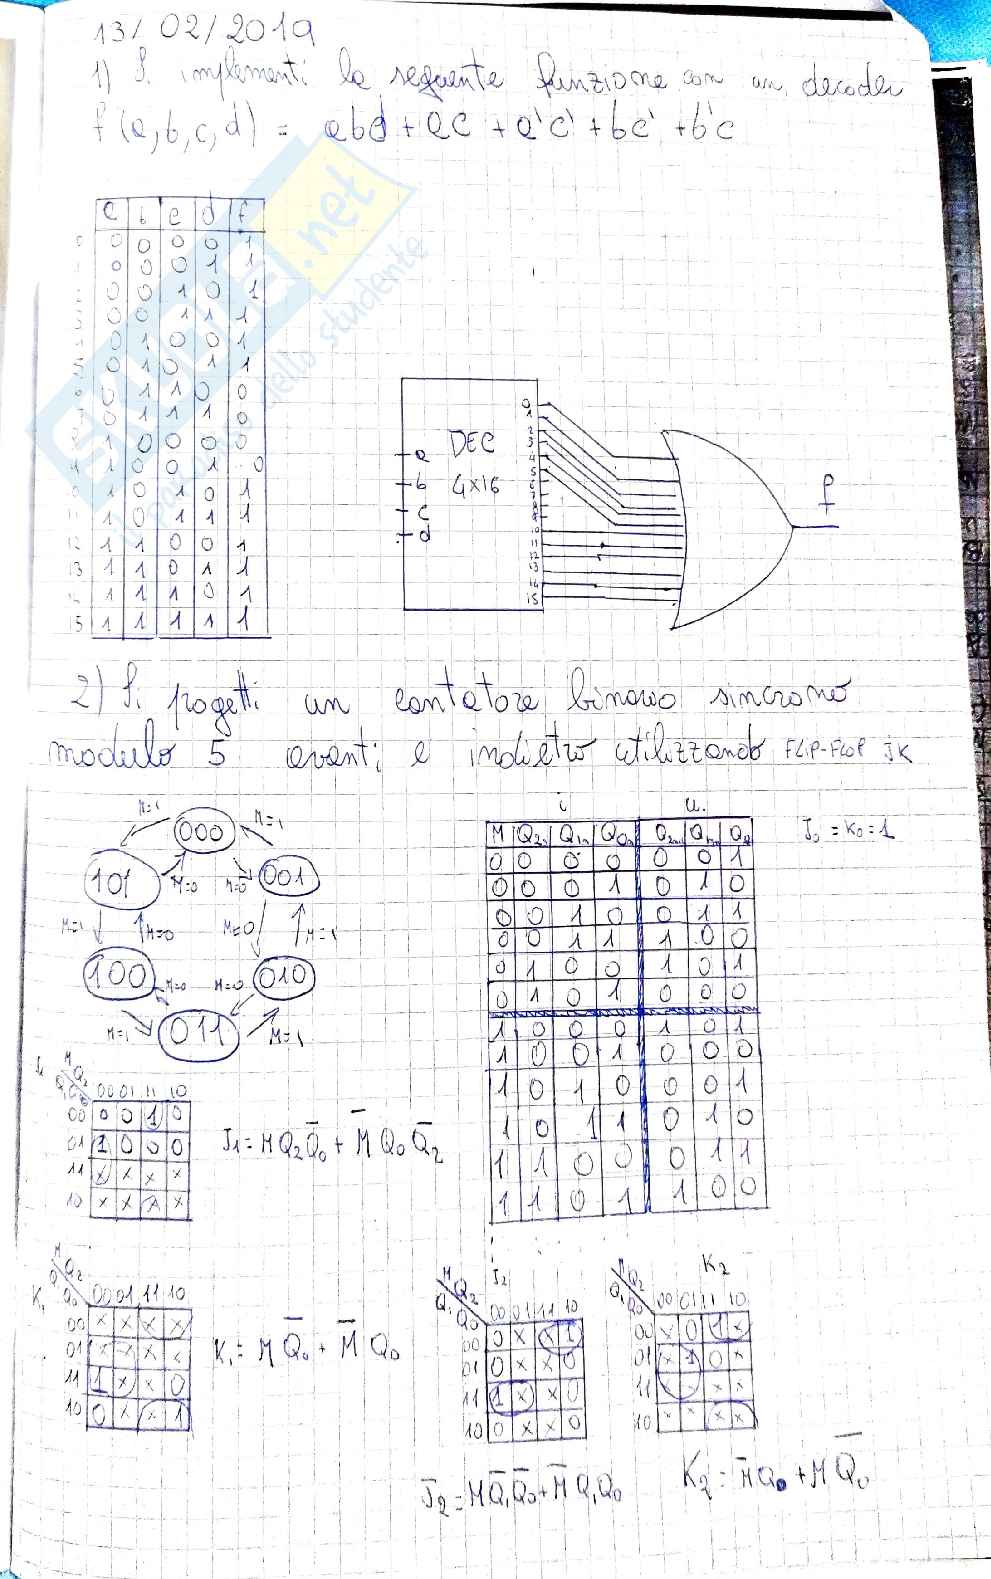 13/02/2019
1) Si implementi la seguente funzione con un decoder
f(a,b,c,d) = abd + ac + a'c' + bc' + b'c
SKUOLA.net
il portale dello studente
a b c d f
0 0 0 0 0 1
1 0 0 0 1 1
2 0 0 1 0 1
3 0 0 1 1 1
4 0 1 0 0 1
5 0 1 0 1 1
6 0 1 1 0 0
7 0 1 1 1 0
8 1 0 0 0 0
9 1 0 0 1 0
10 1 0 1 0 1
11 1 0 1 1 1
12 1 1 0 0 1
13 1 1 0 1 1
14 1 1 1 0 1
15 1 1 1 1 1
DEC
4x16
a
b
c
d
0
1
2
3
4
5
6
7
8
9
10
11
12
13
14
15
f
2) Si progetti un contatore binario sincrono
modulo 5 avanti e indietro utilizzando FLIP-FLOP JK
M=1 000 M=1
101 M=0 M=0 001
M=1 M=0 M=0 M=1
100 M=0 M=0 010
M=1 011 M=1
i u.
M Q2n Q1n Q0n Q2n+1 Q1n+1 Q0
0 0 0 0 0 0 1
0 0 0 1 0 1 0
0 0 1 0 0 1 1
0 0 1 1 1 0 0
0 1 0 0 1 0 1
0 1 0 1 0 0 0
1 0 0 0 1 0 1
1 0 0 1 0 0 0
1 0 1 0 0 0 1
1 0 1 1 0 1 0
1 1 0 0 0 1 1
1 1 0 1 1 0 0
J0 = K0 = 1
J1
M Q2
Q1 Q0 00 01 11 10
00 0 0 1 0
01 1 0 0 0
11 x x x x
10 x x x x
J1 = M Q2 Q̅0 + M̅ Q0 Q̅2
K1
M Q2
Q1 Q0 00 01 11 10
00 x x x x
01 x x x x
11 1 x x 0
10 0 x x 1
K1 = M Q̅0 + M̅ Q0
J2
M Q2
Q1 Q0 00 01 11 10
00 0 x x 1
01 0 x x 0
11 1 x x 0
10 0 x x 0
J2 = M Q̅1 Q̅0 + M̅ Q1 Q0
K2
M Q2
Q1 Q0 00 01 11 10
00 x 0 1 x
01 x 1 0 x
11 x x x x
10 x x x x
K2 = M̅ Q0 + M Q̅0